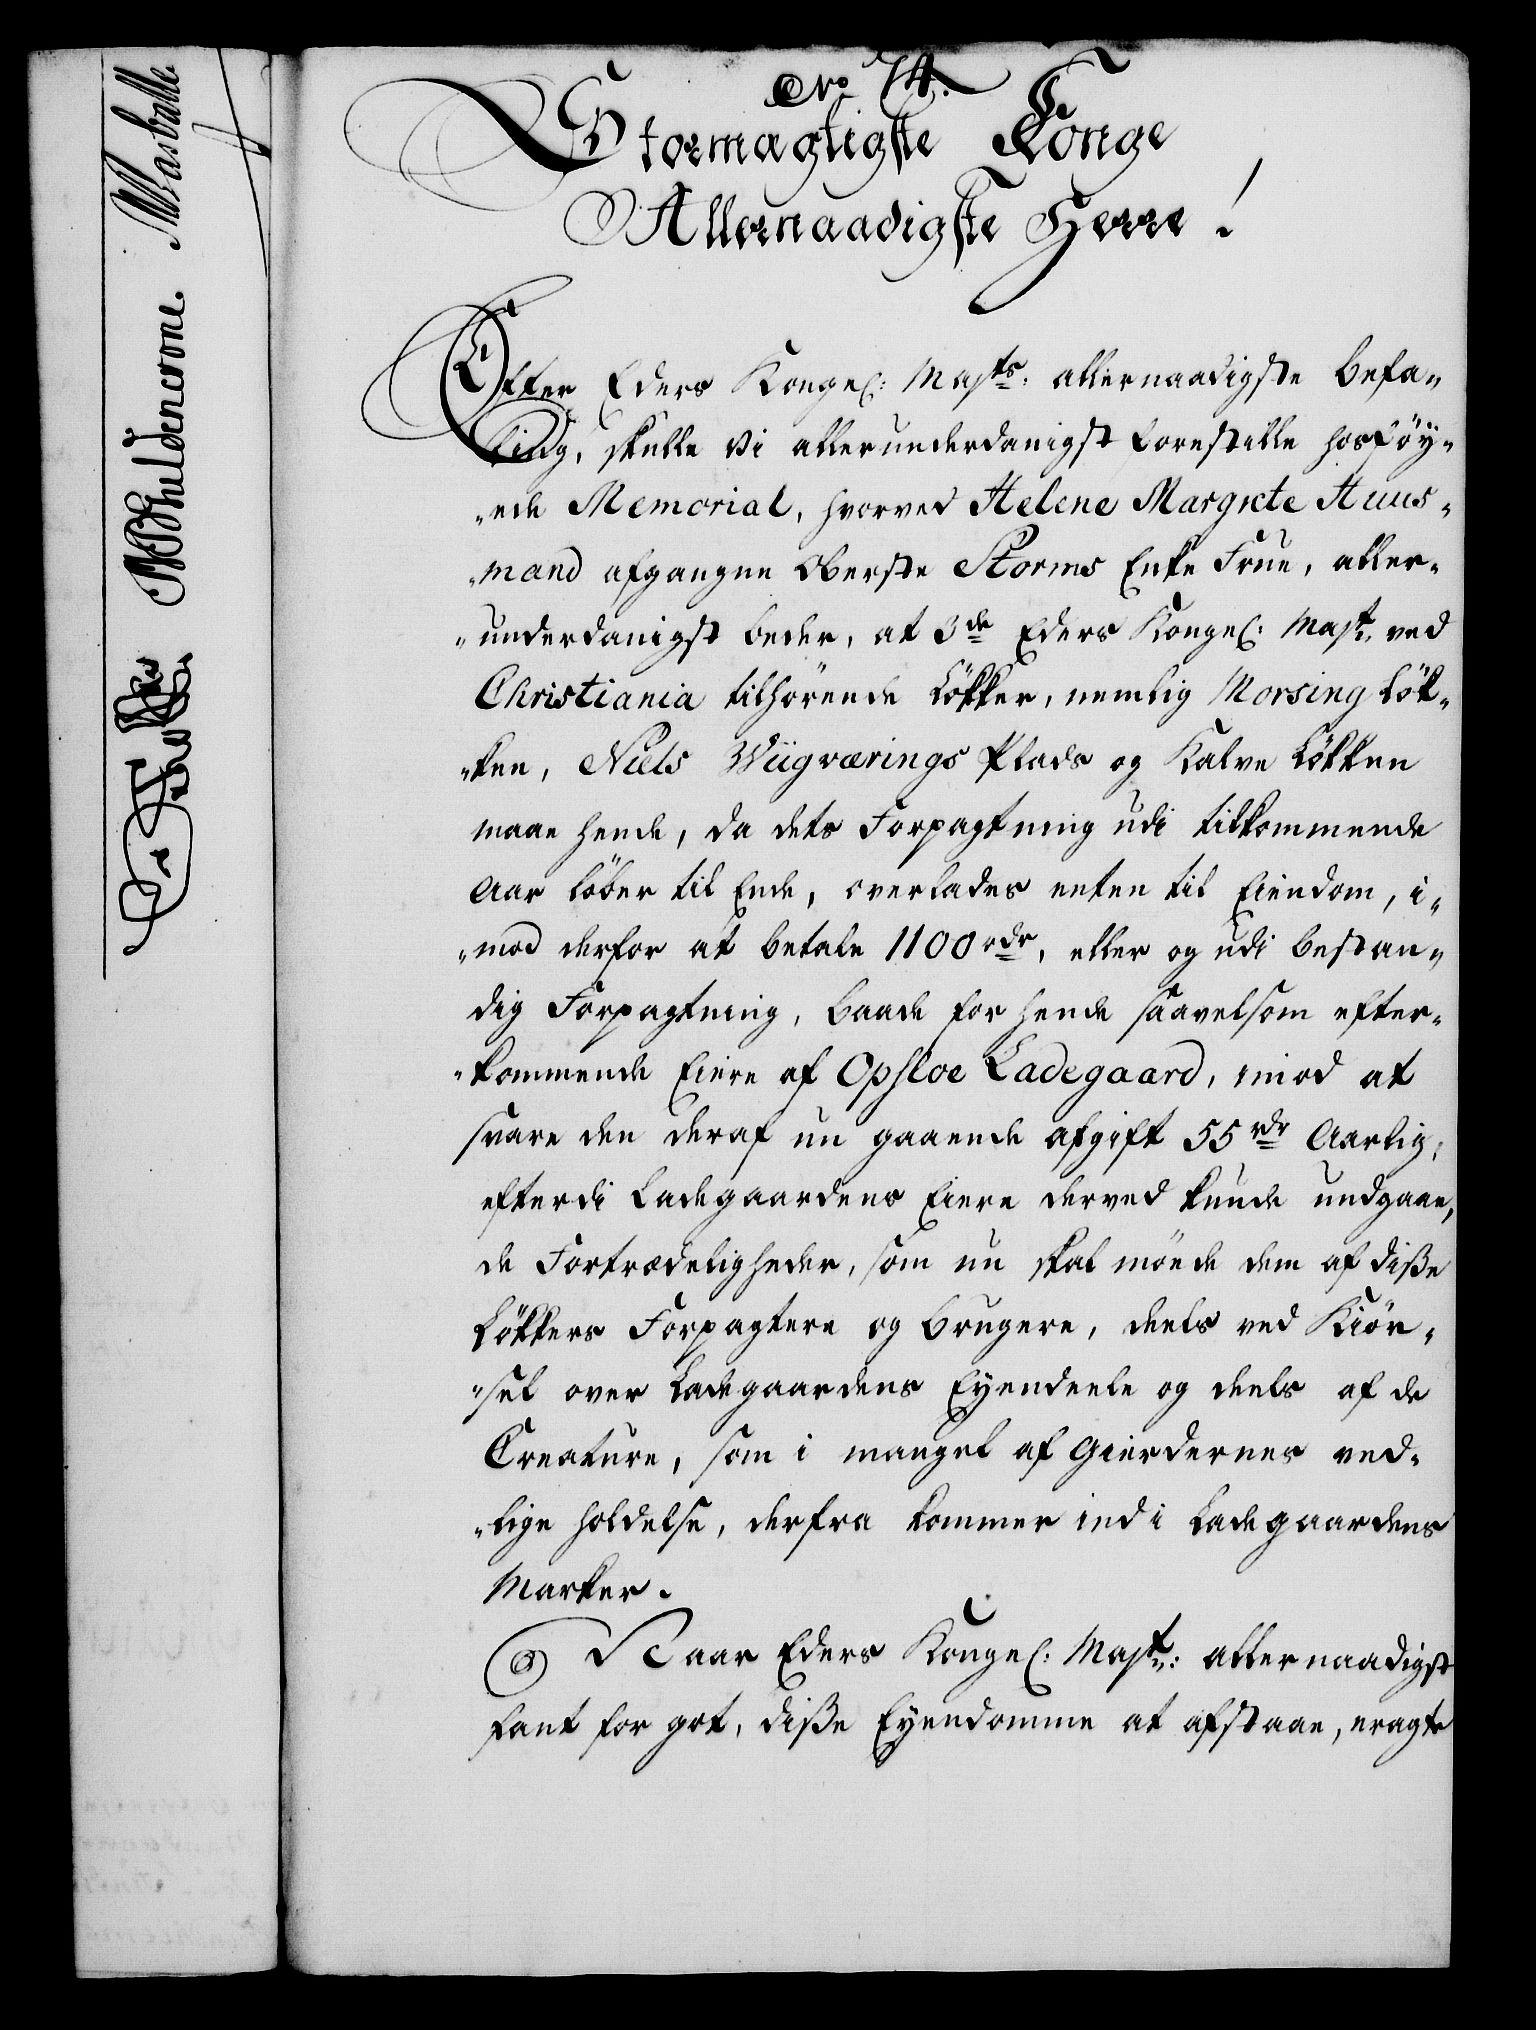 No 74.
Stormægtigste Konge
Allernaadigste Herre!
Efter Eders Kongel: Majts: allernaadigste Befa-
ling, skulle Vi allerunderdanigst forestille hosföy-
-ede Memorial, hvorved Helene Margrete Huus-
-mand afgangne Oberste Storms Enke Frue, aller-
-underdanigst beder, at 3de Eders Kongel: Majt: ved
Christiania tilhörende Lökker, nemlig Morsing Lök-
-ken, Niels Wiigværings Plads og Kalve Lökken
maae hende, da dets Forpagtning udi tilkommende
Aar löber til Ende, overlades enten til Eiendom, i-
-mod derfor at betale 1100 rdr, eller og udi bestan-
dig Forpagtning, baade for hende saavelsom efter-
-kommende Eiere af Opsloe Ladegaard, imod at
svare den deraf nu gaaende afgift 55 rdr Aarlig,
efterdi Ladegaardens Eiere derved kunde undgaae,
de Fortrædeligheder, som nu skal möede dem af diße
Lökkers Forpagtere og Brugere, deels ved Kiör-
-sel over Ladegaardens Eyendeele og deels af de
Creature, som i mangel af Gierdernes ved-
-lige holdelse, derfra kommer ind i Ladegaardens
Marker.
Naar Eders Kongel: Majt: allernaadigst
fant for got, diße Eyendomme at afstaae, eragte